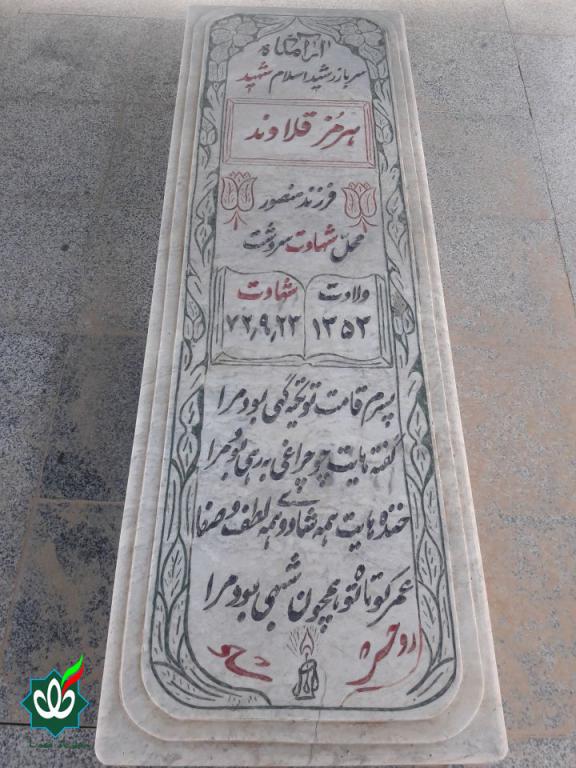 آرامگاه
سرباز رشید اسلام شهید
هرمز قلاوند
فرزند منصور
محل شهادت سردشت
ولادت شهادت
۱۳۵۳ ۷۲,۹,۲۳
پسرم قامت تو تکیه گهی بود مرا
گفته هایت چو چراغی به رهی بود مرا
خنده هایت همه شادی و همه لطف و صفا
عمر کوتاه تو همچون شبهی بود مرا
روحش شاد